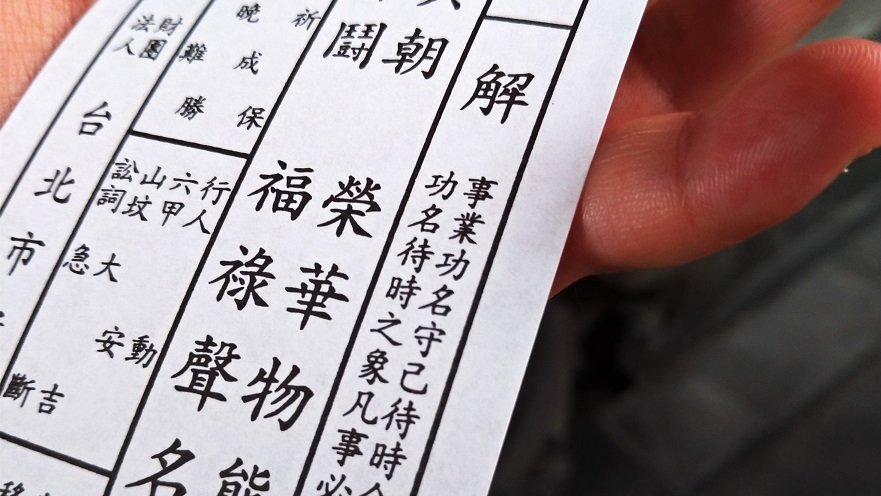 解
事業功名守己待時
功名待時之象凡事必
朝 榮華物態
鬪 福祿聲名
祈 保
晚 成
難 勝
行人 動
六甲 安
山墳 大 吉
訟詞 急 斷
財團
法人
台北市